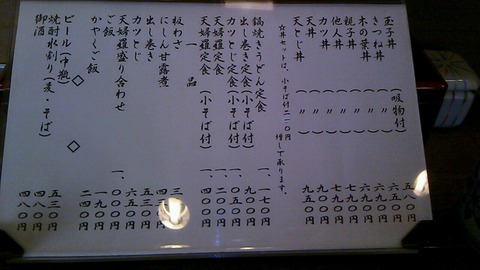 玉子丼（吸物付）五八〇円
きつね丼（〃）六五〇円
木の葉丼（〃）六五〇円
親子丼（〃）六九〇円
他人丼（〃）七九〇円
カツ丼（〃）七九〇円
天丼（〃）九五〇円
天とじ丼（〃）九五〇円
☆丼セットは、小そば付二一〇円増しで承ります。
鍋焼きうどん定食 一、一七〇円
出し巻き定食（小そば付）九〇〇円
カツとじ定食（小そば付）一、〇五〇円
天婦羅定食 一、二〇〇円
天婦羅定食（小そば付）一、四〇〇円
一品
板わさ 三
にしん甘露煮 四
出し巻き 五三〇円
カツとじ 六五〇円
天婦羅盛り合わせ 一、〇〇〇円
ご飯 一九〇円
かやくご飯 二四〇円
ビール（中瓶）五三〇円
焼酎水割り（麦・そば）四八〇円
御酒 四八〇円